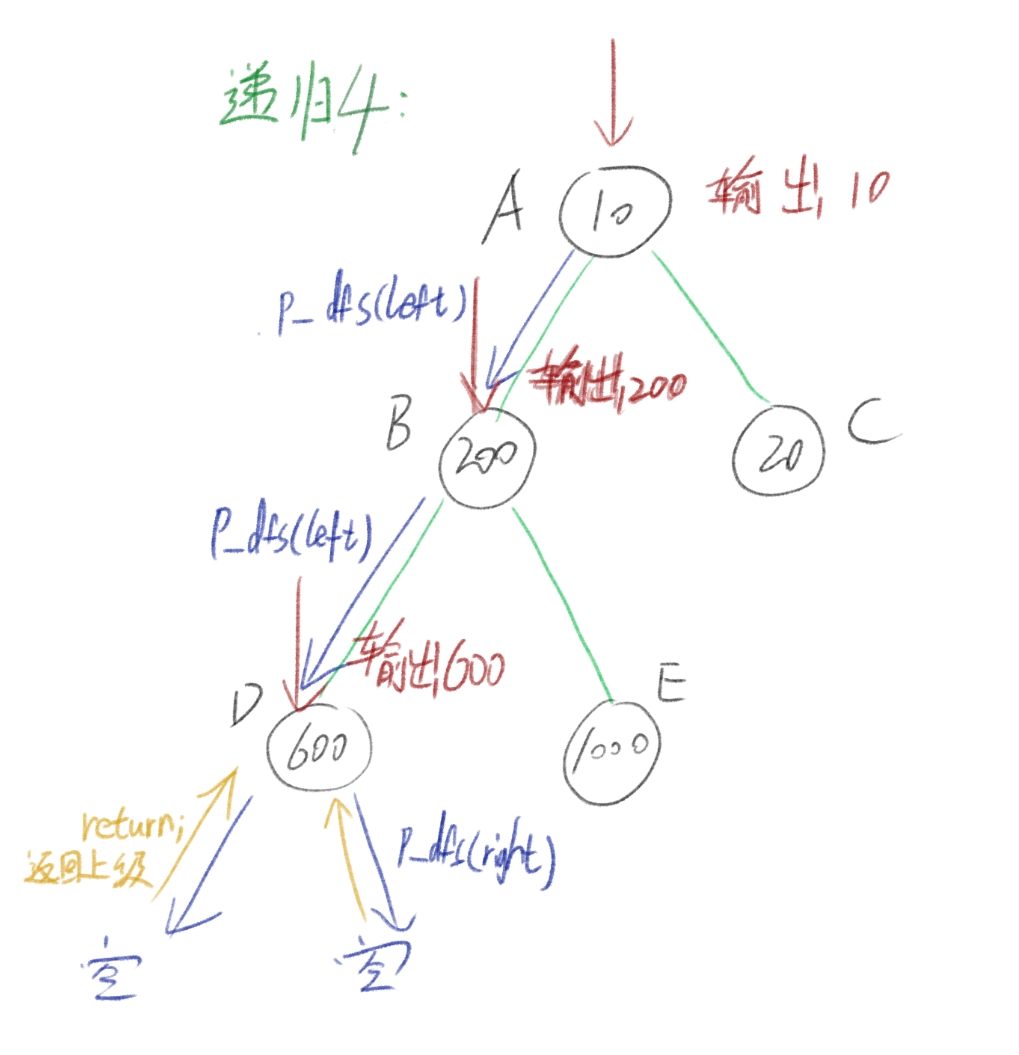 递归4:
A
10
输出 10
P_dfs(left)
输出 200
B
200
20
C
P_dfs(left)
输出 600
D
600
E
1000
return;
返回上级
P_dfs(right)
空
空